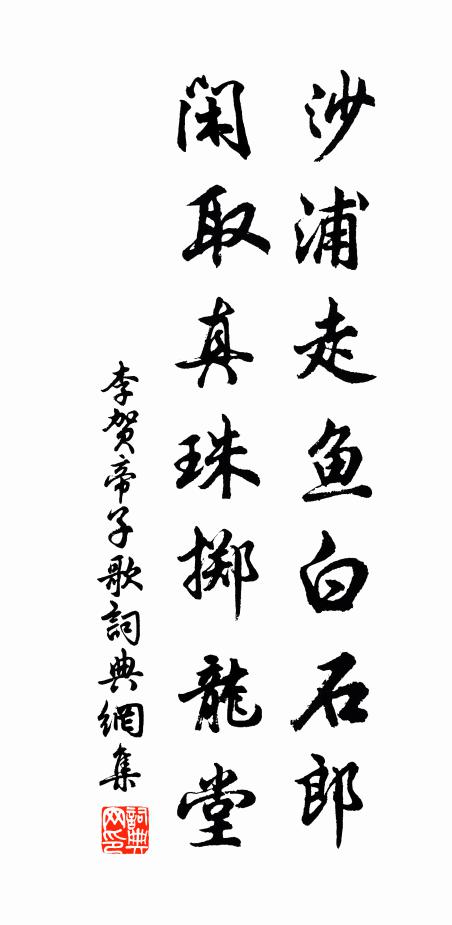 沙浦走鱼白石郎
闲取真珠掷龍堂
李贺帝子歌詞典網集
詞典网印